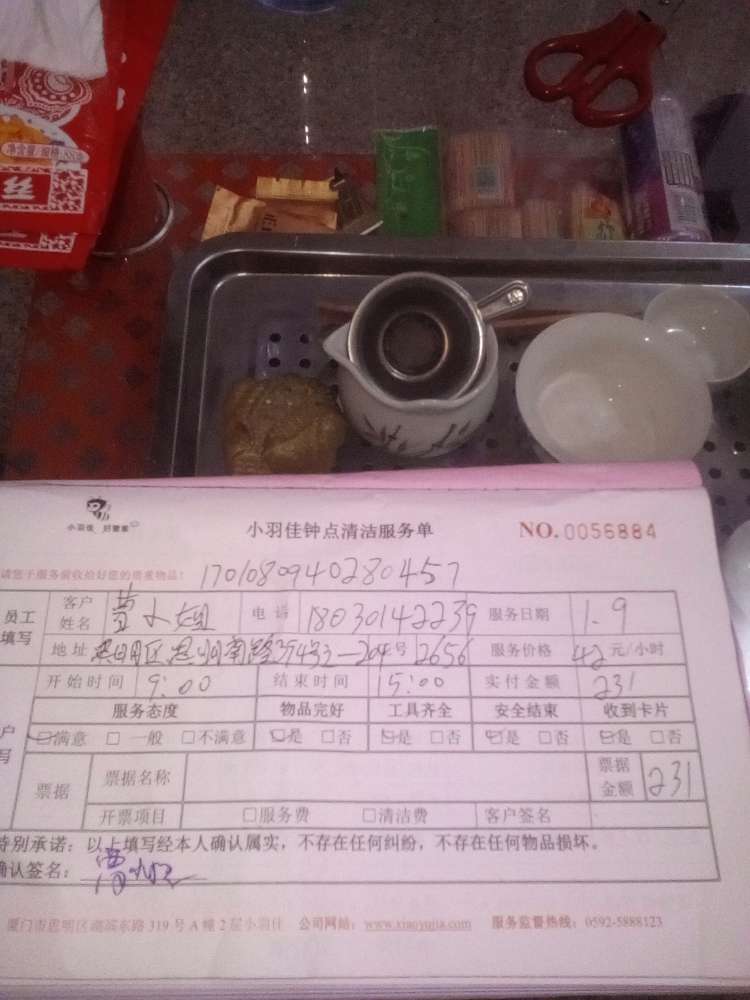 净含量/规格:
丝
小羽佳 好管家
小羽佳钟点清洁服务单
NO.0056884
请您于服务前收拾好您的贵重物品!
1701080940280457
员工填写
客户姓名 曾小姐 电话 18030142239 服务日期 1.9
地址 思明区思明南路 号 2656 服务价格 42 元/小时
开始时间 9:00 结束时间 15:00 实付金额 231
服务态度 物品完好 工具齐全 安全结束 收到卡片
☑满意 □一般 □不满意 ☑是 □否 ☑是 □否 ☑是 □否 ☑是 □否
票据 票据名称 票据金额 231
开票项目 □服务费 □清洁费 客户签名
特别承诺:以上填写经本人确认属实,不存在任何纠纷,不存在任何物品损坏。
确认签名:
厦门市思明区湖滨东路319号A幢2层小羽佳 公司网站:www.xiaoyujia.com 服务监督热线:0592-5888123